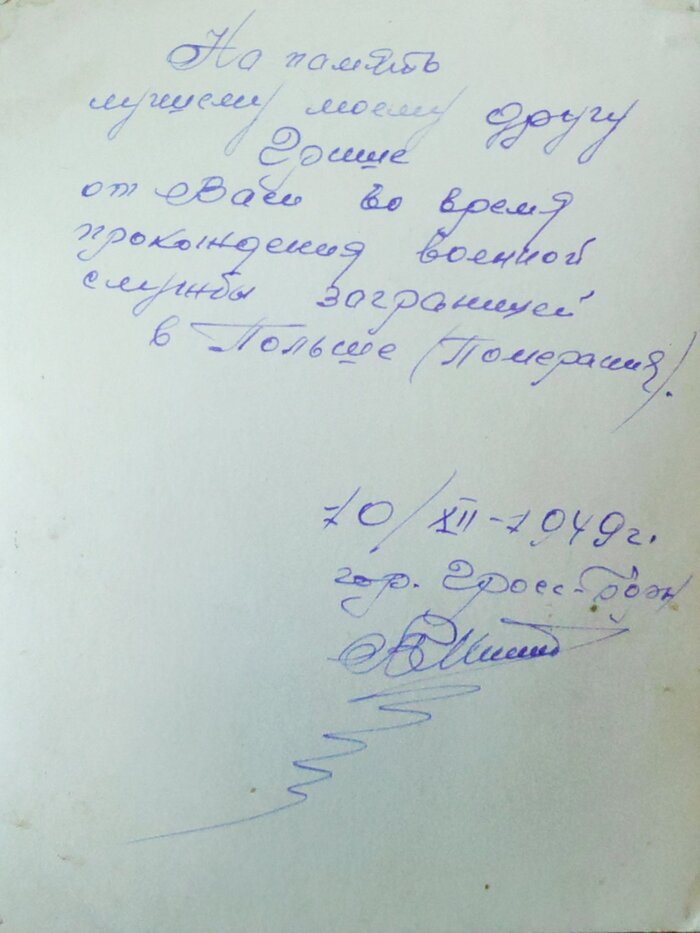 На память
лучшему моему другу
Грише
от Васи во время
прохождения военной
службы заграницей
в Польше (Померания).
10/XII-1949г.
гор. Гросс-Борн